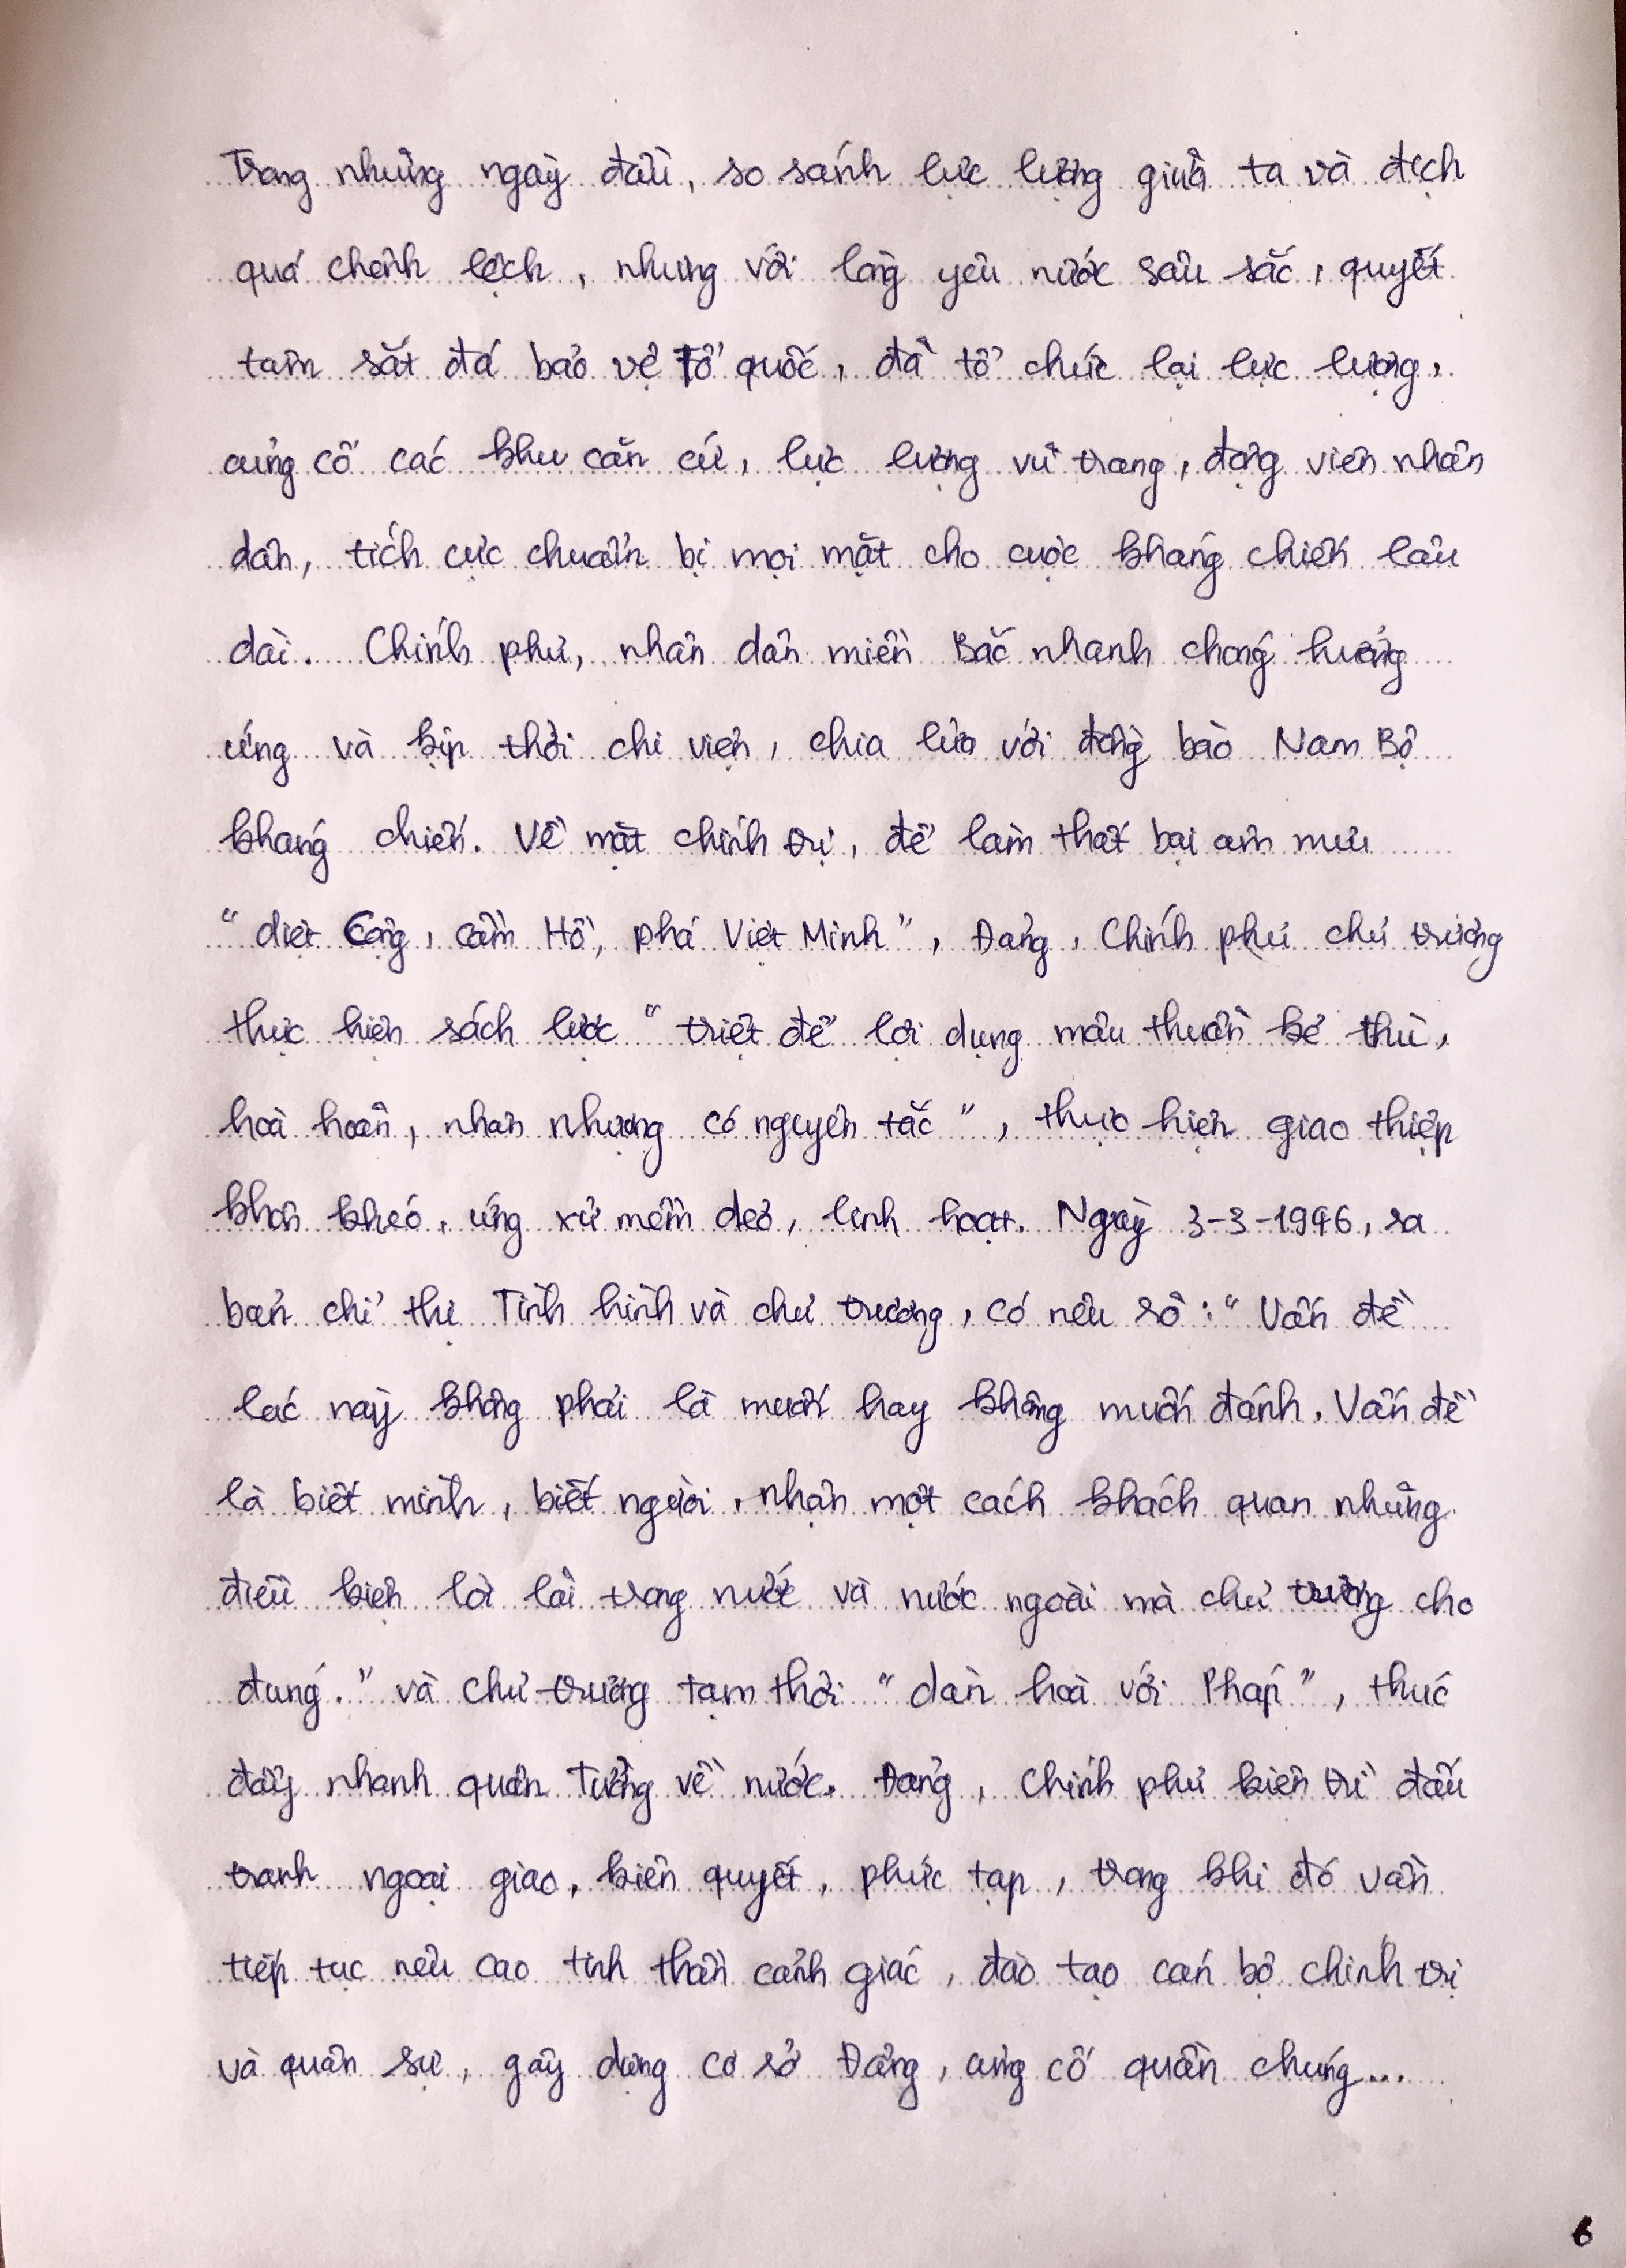 Trong những ngày đầu, so sánh lực lượng giữa ta và địch
quá chênh lệch, nhưng với lòng yêu nước sâu sắc, quyết
tâm sắt đá bảo vệ Tổ quốc, đã tổ chức lại lực lượng,
củng cố các khu căn cứ, lực lượng vũ trang, động viên nhân
dân, tích cực chuẩn bị mọi mặt cho cuộc kháng chiến lâu
dài. Chính phủ, nhân dân miền Bắc nhanh chóng hưởng
ứng và kịp thời chi viện, chia lửa với đồng bào Nam Bộ
kháng chiến. Về mặt chính trị, để làm thất bại âm mưu
"diệt Cộng, cầm Hồ, phá Việt Minh", Đảng, Chính phủ chủ trương
thực hiện sách lược "triệt để lợi dụng mâu thuẫn kẻ thù,
hoà hoãn, nhân nhượng có nguyên tắc", thực hiện giao thiệp
khôn khéo, ứng xử mềm dẻo, linh hoạt. Ngày 3-3-1946, ra
bản chỉ thị Tình hình và chủ trương, có nêu rõ: "Vấn đề
lúc này không phải là muốn hay không muốn đánh. Vấn đề
là biết mình, biết người, nhận một cách khách quan những
điều kiện lời lãi trong nước và nước ngoài mà chủ trương cho
đúng." và chủ trương tạm thời "dàn hoà với Pháp", thúc
đẩy nhanh quân Tưởng về nước. Đảng, Chính phủ kiên trì đấu
tranh ngoại giao, kiên quyết, phức tạp, trong khi đó vẫn
tiếp tục nêu cao tinh thần cảnh giác, đào tạo cán bộ chính trị
và quân sự, gây dựng cơ sở Đảng, củng cố quần chúng...
6